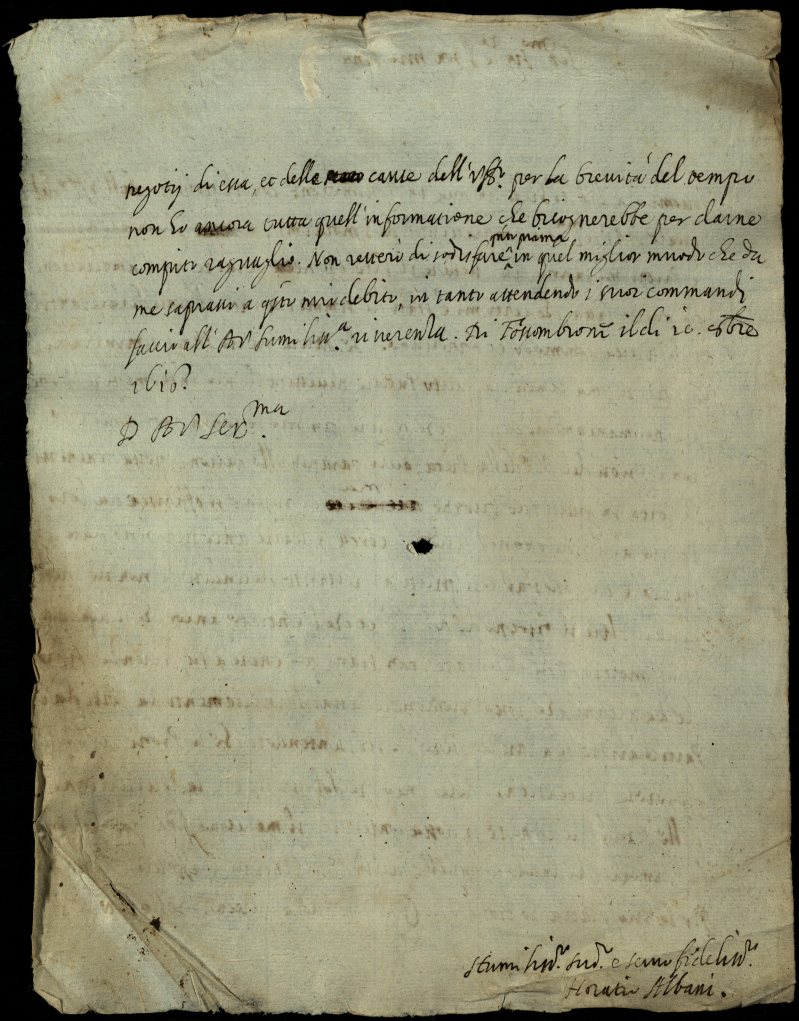 negotij di essa, et delle cause dell'Uff.º per la brevità del tempo
non ho ancora tutta quell'informatione che bisognerebbe per darne
compito raguaglio. Non resterò di sodisfare quanto prima in quel miglior muodo che da
me saprassi a q.sto mio debito, in tanto attendendo i suoi commandi
faccio all'A.V. humiliss.ª riverenza. Di Fossombrone il di 10.
1616.
D. A. V. Ser.ma
Humiliss.º sud.º e servo fideliss.º
Horatio Albani.